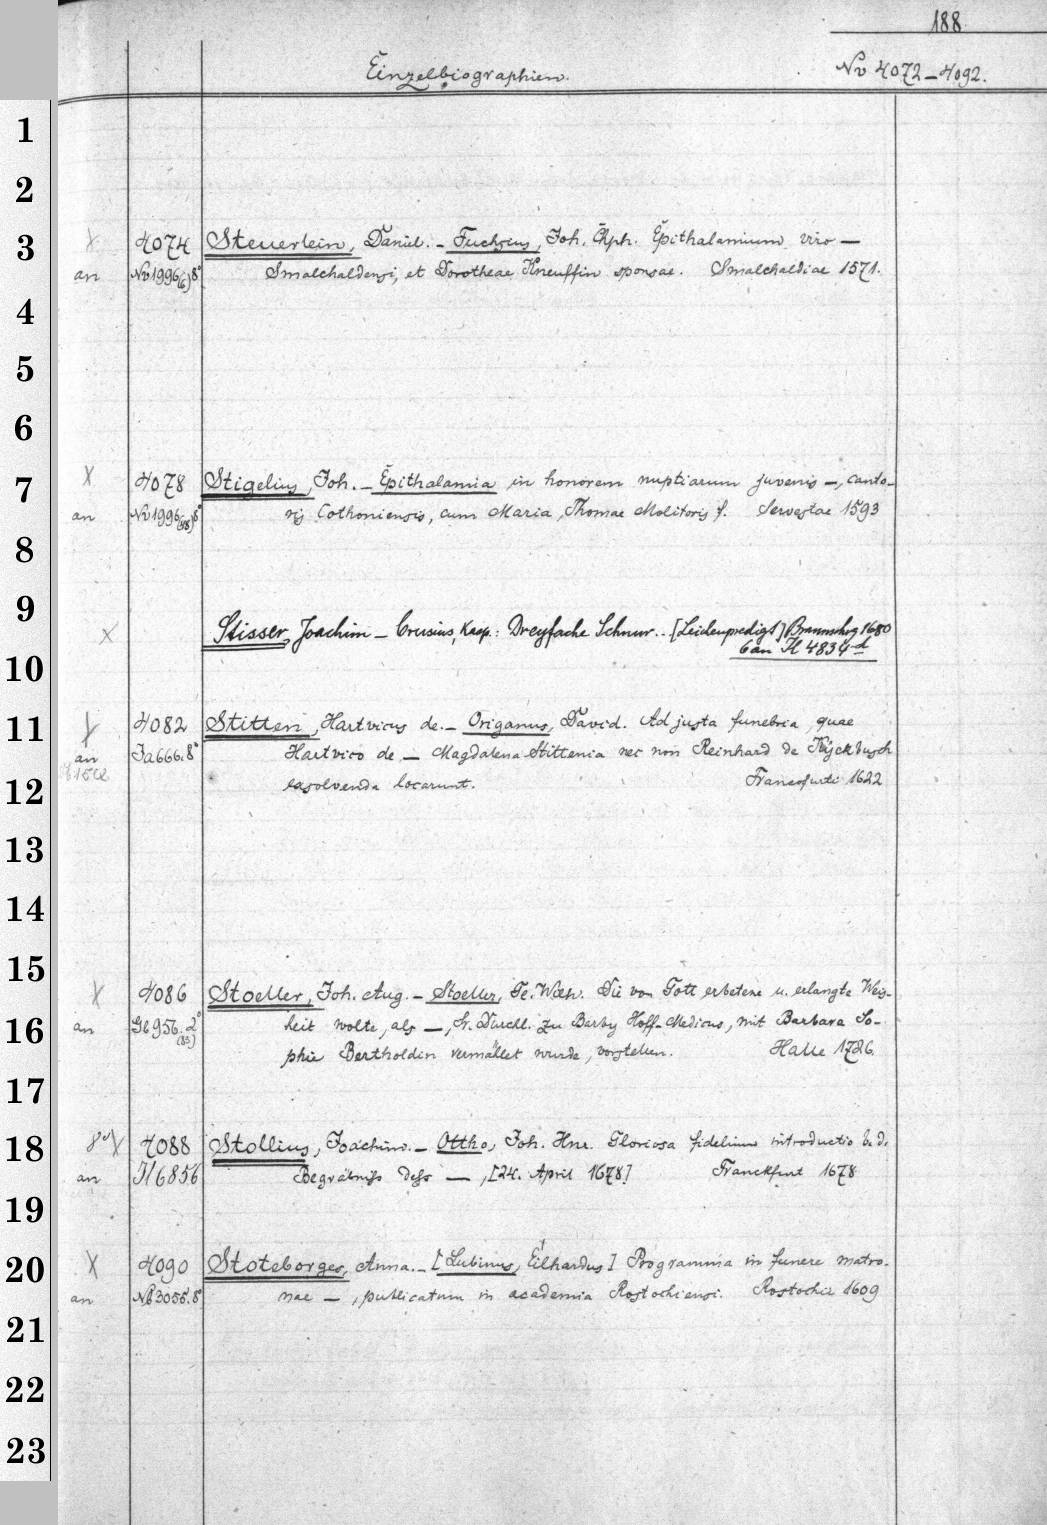 188
Einzelbiographien.
Nv 4072–4092.
1
2
3 X 4074 Steuerlein, Daniel. – Fuchsius, Joh. Chph. Epithalamium viro —
an Nv 1996(6) 8° Smalchaldensi, et Dorotheae Kneuffin sponsae. Smalchaldiae 1571.
4
5
6
7 X 4078 Stigelius, Joh. – Epithalamia in honorem nuptiarum juvenis –, canto-
an Nv 1996 8° ris Cothoniensis, cum Maria, Thomae Molitoris f. Servestae 1593
8
9 X Stisser, Joachim – Crusius, Kasp.: Dreyfache Schnur.. [Leichenpredigt] Braunschwg 1680
6 an H 4834d
10
11 X 4082 Stitten, Hartvicus de. – Origanus, David. Ad justa funebria, quae
an Ja 666. 8° Hartvico de — Magdalena Stittenia nec non Reinhard de
12 exsolvenda locarunt. Francofurti 1622
13
14
15 X 4086 Stoeller, Joh. Aug. – Stoeller, Fe. Wilh. Die von Gott erbetene u. erlangte Weis-
16 an 956. 2° heit wolte, als —, Sr. Durchl. zu Barby Hoff-Medicus, mit Barbara So-
phie Bertholdin vermället wurde, vorstellen. Halle 1726.
17
18 X 4088 Stollius, Joachim. – Ottho, Joh. Hnr. Gloriosa fidelium introductio b. d.
an H 6856 Begräbniss dess —, [24. April 1678] Franckfurt 1678
19
20 X 4090 Stoteborges, Anna. – [Lubinus, Eilhardus] Programma in funere matro-
an 3056. 8° nae —, publicatum in academia Rostochiensi. Rostochii 1609
21
22
23